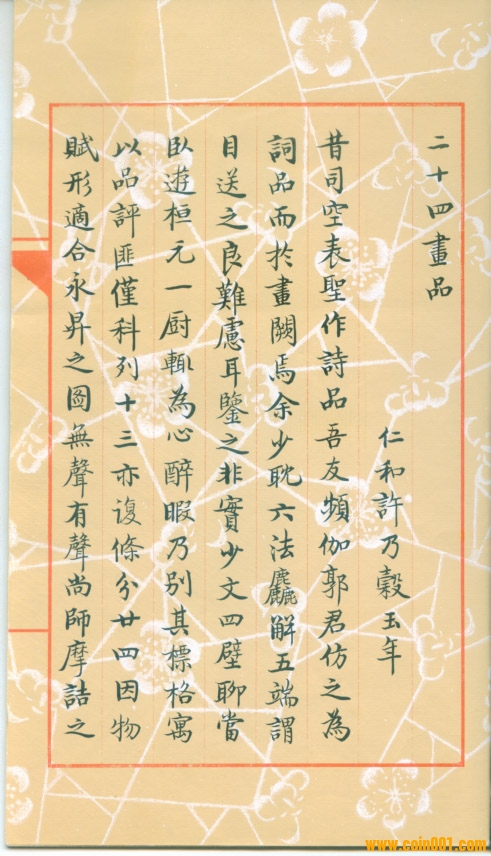 二十四畫品
仁和許乃穀玉年
昔司空表聖作詩品吾友頻伽郭君仿之為
詞品而於畫闕焉余少耽六法麤解五端謂
目送之良難慮耳鑒之非實少文四壁聊當
臥遊桓元一厨輒為心醉暇乃別其標格寓
以品評匪僅科列十三亦復條分廿四因物
賦形適合永昇之圖無聲有聲尚師摩詰之
www.coin001.com